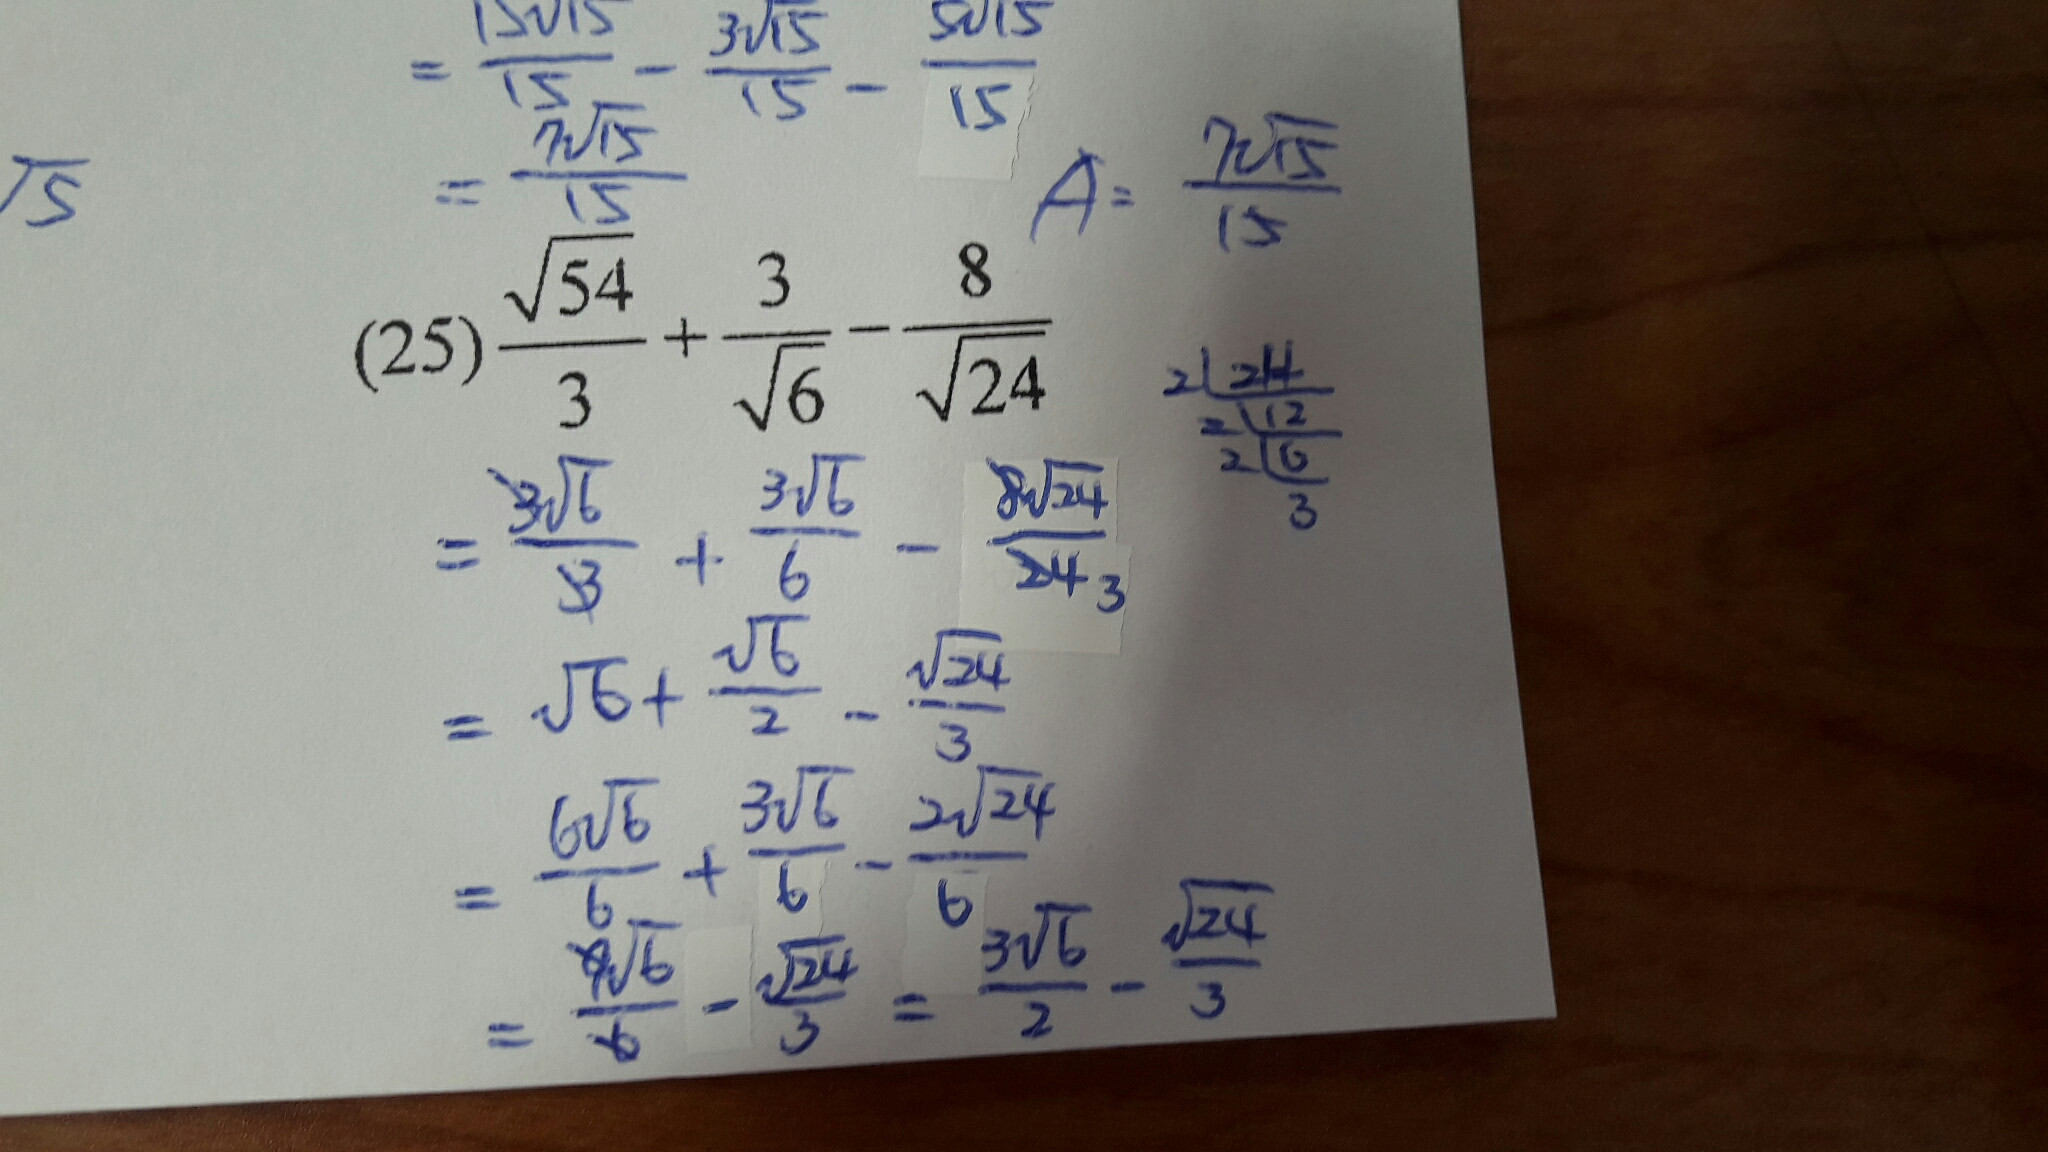 = 15√15/15 - 3√15/15 - 5√15/15
√5
= 7√15/15 A = 7√15/15
(25) √54/3 + 3/√6 - 8/√24
2 24
2 12
2 6
3
= 3√6/3 + 3√6/6 - 8√24/24 3
= √6 + √6/2 - √24/3
= 6√6/6 + 3√6/6 - 2√24/6
= 9√6/6 - √24/3 = 3√6/2 - √24/3